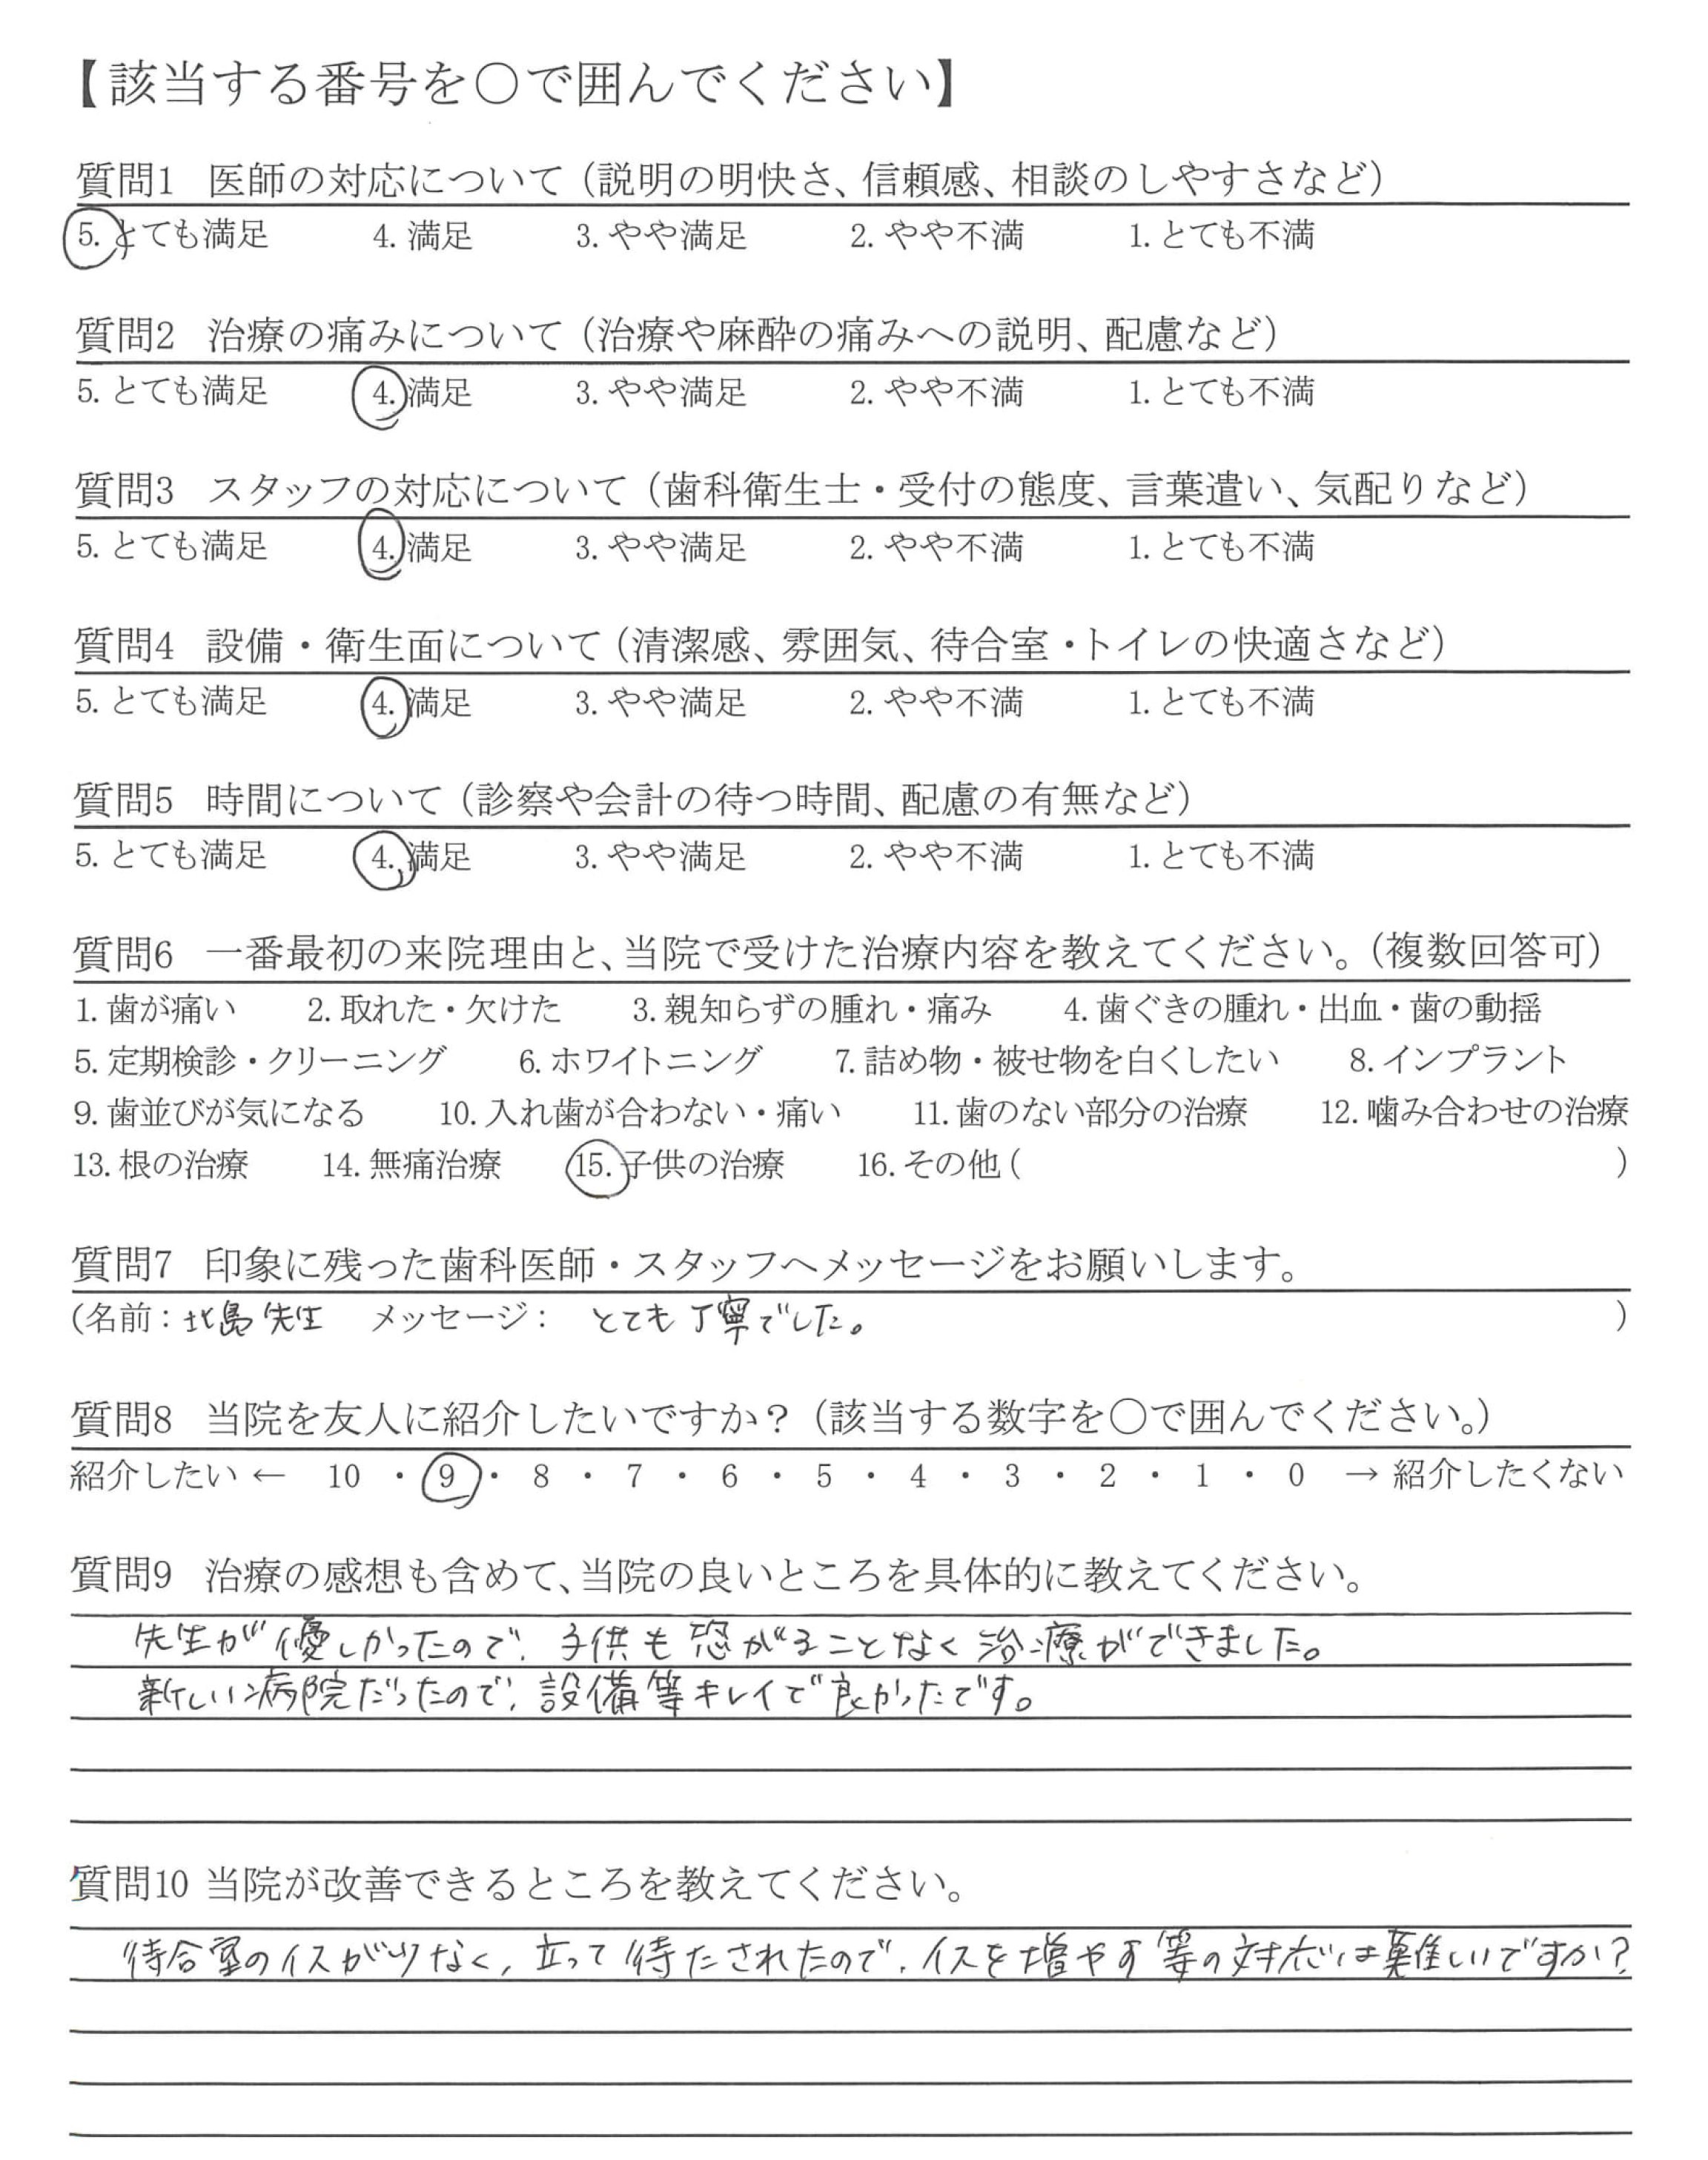 【該当する番号を○で囲んでください】
質問1 医師の対応について（説明の明快さ、信頼感、相談のしやすさなど）
5. とても満足 4. 満足 3. やや満足 2. やや不満 1. とても不満
質問2 治療の痛みについて（治療や麻酔の痛みへの説明、配慮など）
5. とても満足 4. 満足 3. やや満足 2. やや不満 1. とても不満
質問3 スタッフの対応について（歯科衛生士・受付の態度、言葉遣い、気配りなど）
5. とても満足 4. 満足 3. やや満足 2. やや不満 1. とても不満
質問4 設備・衛生面について（清潔感、雰囲気、待合室・トイレの快適さなど）
5. とても満足 4. 満足 3. やや満足 2. やや不満 1. とても不満
質問5 時間について（診察や会計の待つ時間、配慮の有無など）
5. とても満足 4. 満足 3. やや満足 2. やや不満 1. とても不満
質問6 一番最初の来院理由と、当院で受けた治療内容を教えてください。（複数回答可）
1. 歯が痛い 2. 取れた・欠けた 3. 親知らずの腫れ・痛み 4. 歯ぐきの腫れ・出血・歯の動揺
5. 定期検診・クリーニング 6. ホワイトニング 7. 詰め物・被せ物を白くしたい 8. インプラント
9. 歯並びが気になる 10. 入れ歯が合わない・痛い 11. 歯のない部分の治療 12. 噛み合わせの治療
13. 根の治療 14. 無痛治療 15. 子供の治療 16. その他（ ）
質問7 印象に残った歯科医師・スタッフへメッセージをお願いします。
（名前：北島先生 メッセージ： とても丁寧でした。 ）
質問8 当院を友人に紹介したいですか？（該当する数字を○で囲んでください。）
紹介したい ← 10 ・ 9 ・ 8 ・ 7 ・ 6 ・ 5 ・ 4 ・ 3 ・ 2 ・ 1 ・ 0 → 紹介したくない
質問9 治療の感想も含めて、当院の良いところを具体的に教えてください。
先生が優しかったので、子供も恐がることなく治療ができました。
新しい病院だったので、設備等キレイで良かったです。
質問10 当院が改善できるところを教えてください。
待合室のイスが少なく、立って待たされたので、イスを増やす等の対応は難しいですか？